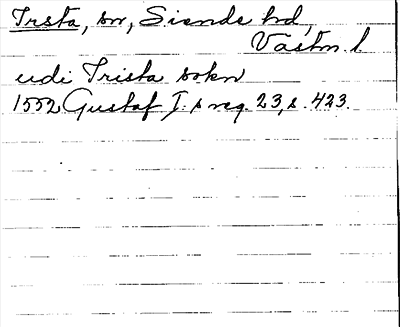 Irsta, sn, Siende hd,
Västm. l
udi Irista sokn
1552 Gustaf I:s reg. 23, s. 423.